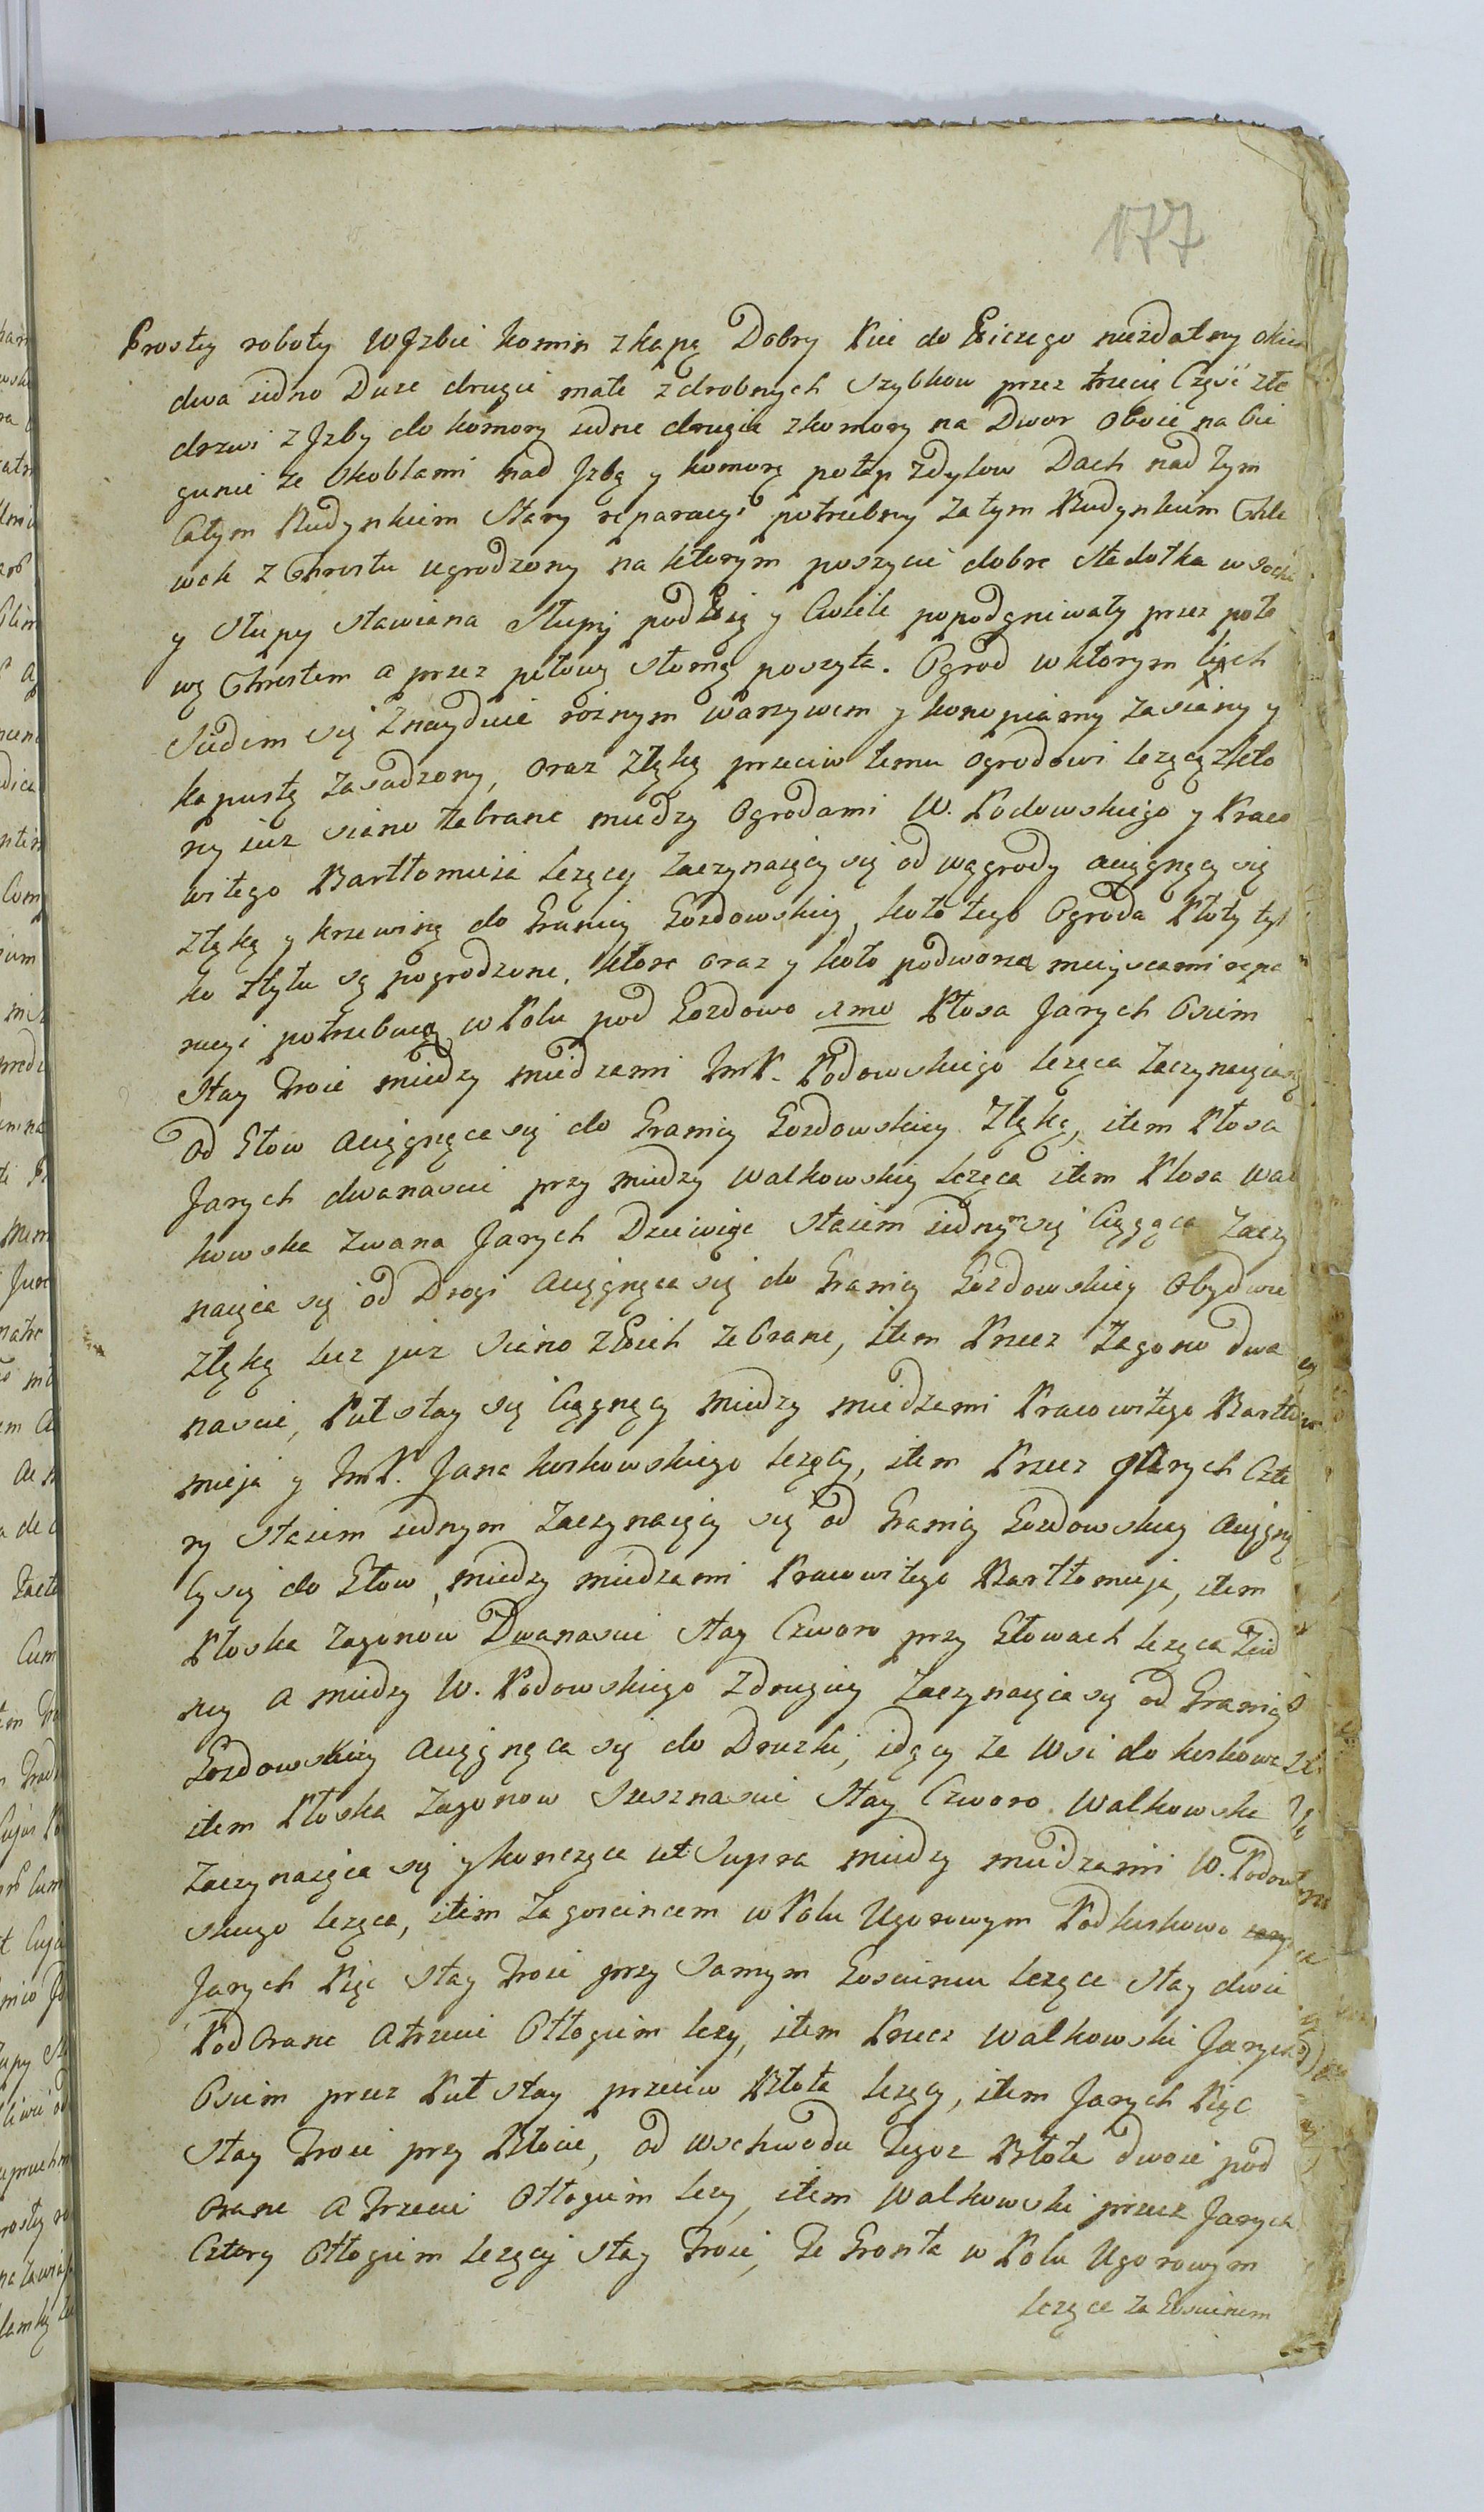 177
Prostey roboty w Jzbie komin z kapą Dobry Piec do Niczego niezdatny okien
dwa iedno Duze drugie małe z drobnych szybkow przez trzecią Część złe
drzwi z Jzby do komory iedne drugie z komory na Dwor oboie na bie
gunie ze skoblami nad Jzbą y komorą połap z dylow Dach nad tym
Całym Budynkiem Stary reparacyi potrzebny za tym Budynkiem Chle
wek z Chrostu ugrodzony na ktorym poszycie dobre Stodołka w Sochy
y słupy stawiana słupy podłsię y Cwele popodgniwały przez poło
wę Chrostem a przez połowę słomą poszyta. Ogrod w ktorym lich
siedem się znayduie roznym warzywem y konopiamy zasiany y
kapustą zasadzony, oraz z łąką przeciw temu ogrodowi lezącą z kto
rey iuz siano zebrane miedzy Ogrodami W. Podowskiego y Praco
witego Bartłomieia lezący zaczynaiący się od wągrody aciągnący się
z łąką y krzewiną do Granicy Gozdowskiey, koło tego Ogroda Płoty tyl
ko z tyłu są pogrodzone, ktore oraz y koło podworza mieyscami repa
racyi potrzebuią w Polu pod Gozdowo 1mo Płosa Jarych Osiem
Stay Troie miedzy miedzami JmP. Podowskiego leząca zaczynaiąca się
od Głow aciągnąca się do Granicy Gozdowskiey z łąką, item Płosa
Jarych dwanascie przy miedzy Walkowskiey leząca item Płosa Wal
kowska zwana Jarych Dziewięc staiem iednym się Ciągąca zaczy
naiąca się od Drogi aciągnąca się do Granicy Gozdowskiey obydwie
z łąką lecz juz siano z Nich zebrane, item Przez Zagonow dwa
nascie, Puł stay się Ciągnący miedzy miedzami Pracowitego Bartło
mieja y JmP. Jana koskowskiego lezący, item Przez Jarych Czte
ry staiem iednym zaczynaiący się od Granicy Gozdowskiey aciągną
cy się do Głow, miedzy miedzami Pracowitego Bartłomieja, item
Płoska zagonow Dwanascie stay Czworo przy Głowach leząca z ied
ney a miedzy W. Podowskiego z drugiey zaczynaiąca się od Granicy
Gozdowskiey aciągnąca się do Drozki, idący ze Wsi do koskowa
item Płoska zagonow szesznascie stay Czworo Walkowska
zaczynaiąca się y koncząca ut supra miedzy miedzami W. Podow
skiego leząca, item za goscincem w Polu Ugorowym Pod koskowo
Jarych Pięc stay Troie przy samym Goscincu leząca stay dwie
Podorane a trzecie Odłogiem lezy, item Przez Walkowski Jarych
Osiem przez Puł stay przeciw Błota lezący, item Jarych Pięc
stay Troie przy Błocie, od wschwodu Tegoz Błota dwoie pod
orane a Trzecie Odłogiem lezy, item Walkowski przez Jarych
Cztery Odłogiem lezącey stay Troie, Te Gronta w Polu Ugorowym
lezące za Goscincem